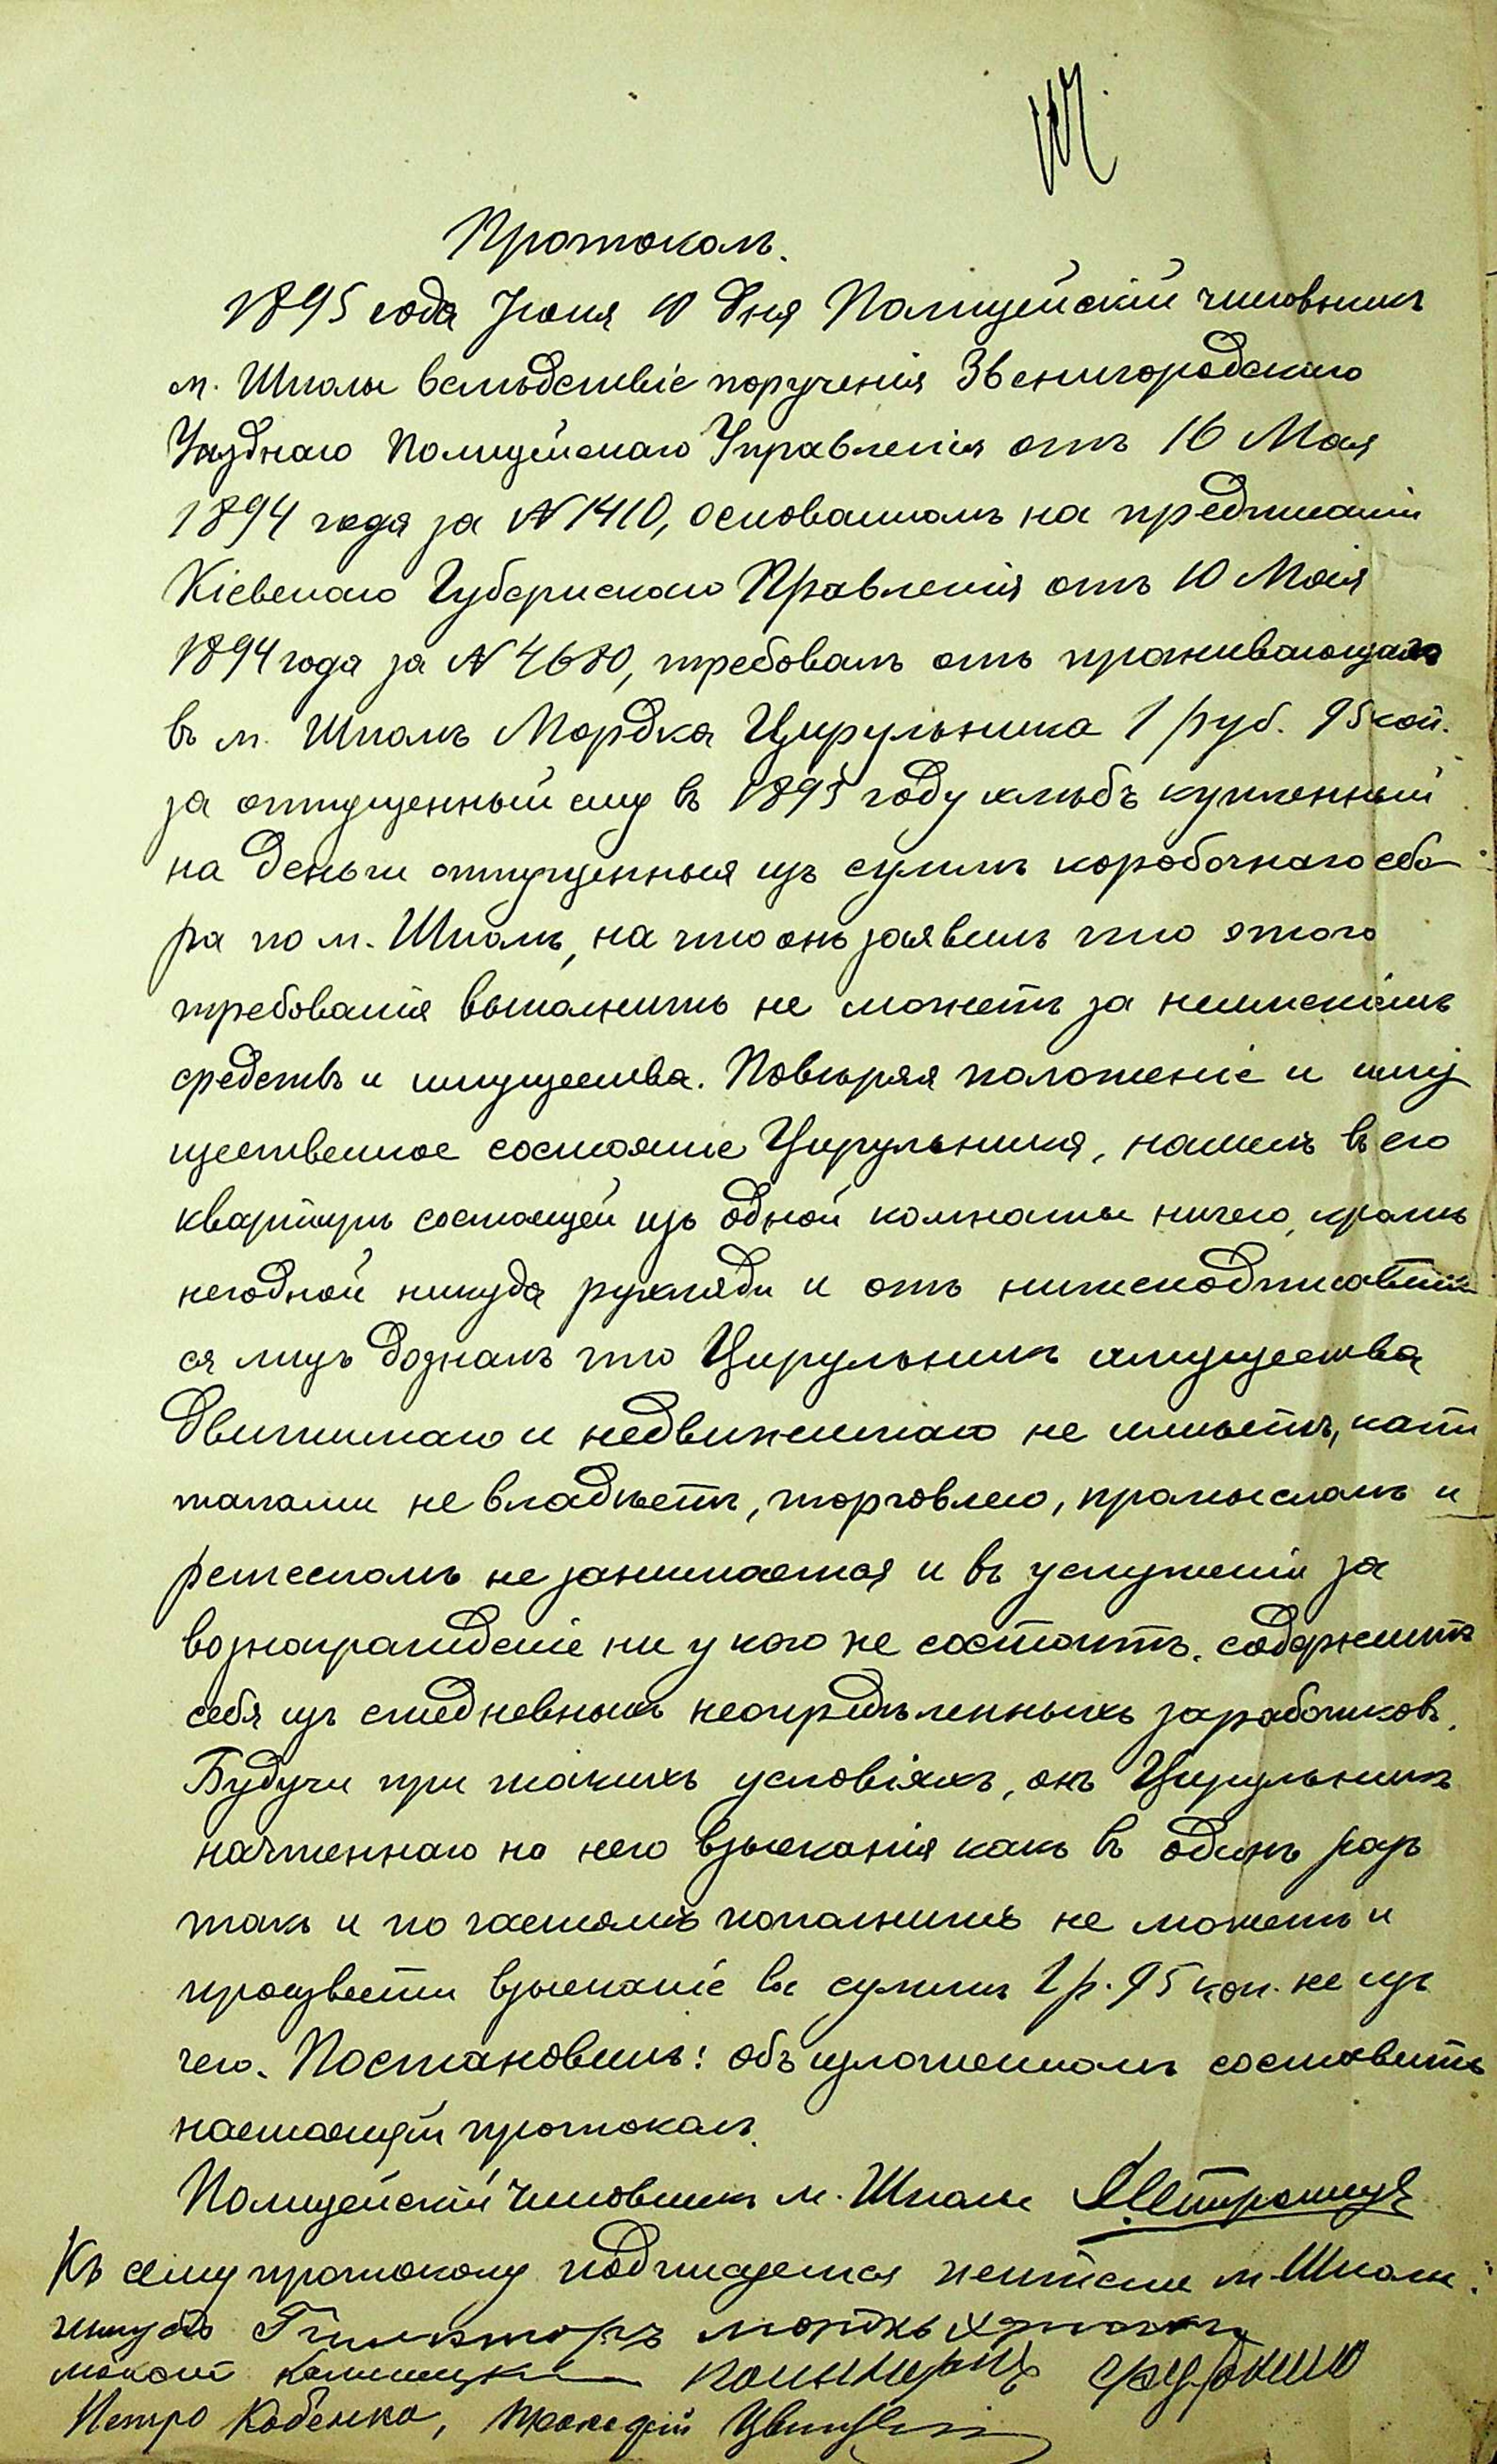 Протоколъ.
1895 года Іюня 10 дня Полицейскій чиновникъ
м. Шполы вслѣдствіе порученія Звенигородскаго
Уѣзднаго Полицейскаго Управленія отъ 16 Мая
1894 года за № 1410, основанномъ на предписаніи
Кіевскаго Губернскаго Правленія отъ 10 Мая
1894 года за № 4680, требовалъ отъ проживающаго
въ м. Шполѣ Мордка Цирульника 1 руб. 95 коп.
за отпущенный ему въ 1893 году хлѣбъ купленный
на деньги отпущенныя изъ суммъ коробочнаго сбо
ра по м. Шполѣ, на что онъ заявилъ что этого
требованія выполнить не можетъ за неимѣніемъ
средствъ и имущества. Повѣряя положеніе и иму
щественное состояніе Цирульника, нашелъ въ его
квартирѣ состоящей изъ одной комнаты ничего, кромѣ
негодной никуда рухляди и отъ нижеподписавших
ся лицъ дозналъ что Цирульникъ имущества
движимаго и недвижимаго не имѣетъ, капи
талами не владѣетъ, торговлею, промысломъ и
ремесломъ не занимается и въ услуженіи за
вознагражденіе ни у кого не состоитъ. содержитъ
себя изъ ежедневныхъ неопредѣленныхъ заработковъ.
Будучи при такихъ условіяхъ, онъ Цирульникъ
начтеннаго на него взысканія какъ въ одинъ разъ
такъ и по частямъ пополнить не можетъ и
произвести взысканіе въ суммѣ 1 р. 95 коп. не изъ
чего. Постановилъ: объ изложенномъ составить
настоящій протоколъ.
Полицейскій Чиновникъ м. Шполы
Къ сему протоколу подписуемся жители м. Шполы:
Петро Кобенко, Прокофій